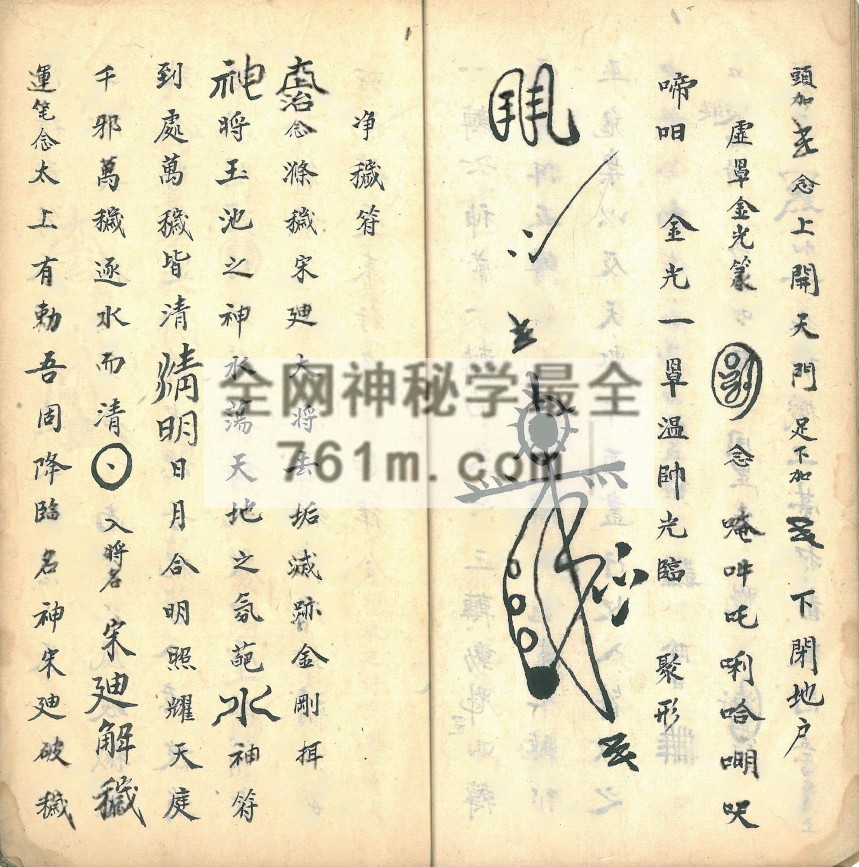 頭加 念上開天門足下加 下閉地户
虛罩金光篆 念唵吽吒唎哈㖟呎
啼呬 金光一罩溫帥光臨 聚形
净穢符
念滌穢宋廸大將去垢滅跡金剛揖
神将玉池之神水蕩天地之氛葩水神符
到處萬穢皆清清明日月合明照耀天庭
千邪萬穢逐水而清 入將名宋廸解穢
運笔念太上有勅吾固降臨名神宋廸破穢
全网神秘学最全
761m.com